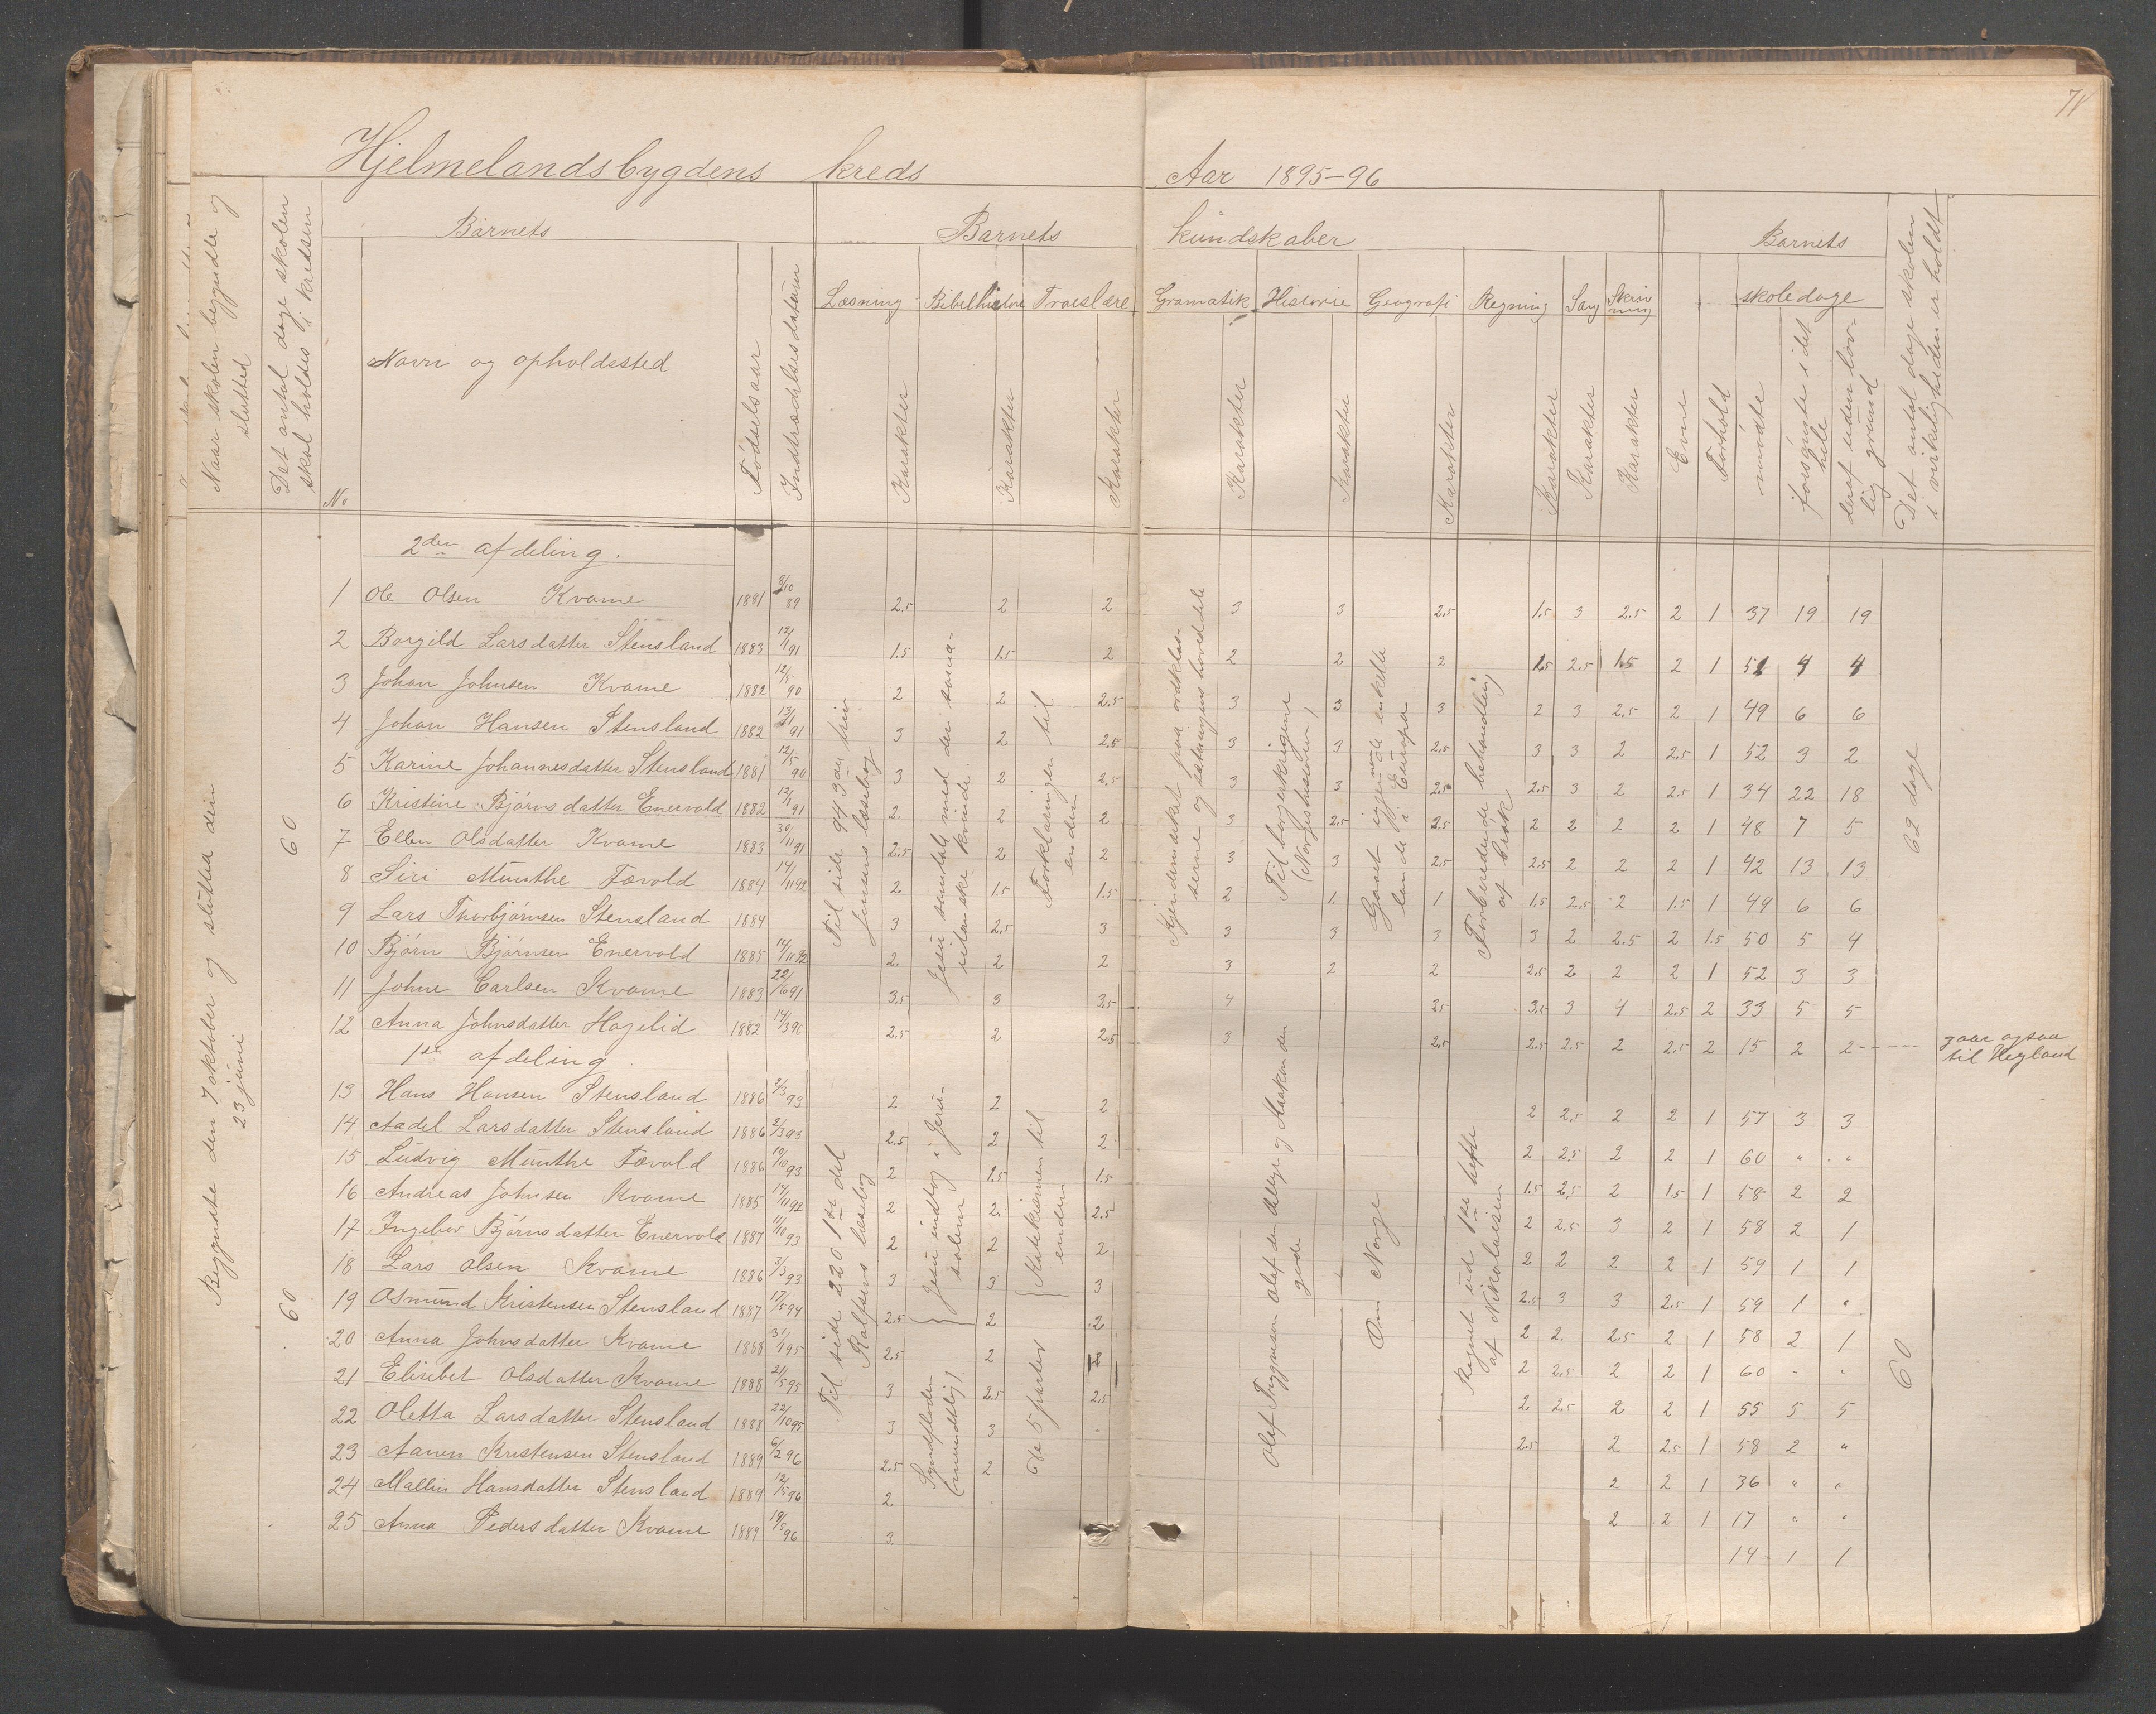 78
Hjelmelandsbygdens kreds Aar 1895-96
Naar skolen begyndte og slutted
Det antal dage skolen skal holdes i kredsen
No
Barnets
Navn og opholdssted
Fødselsaar
Indtrædelsesdatum
Barnets kundskaber
Læsning Bibelhistorie Troeslære Gramatik Historie Geografi Regning Sang Skrivning
Karakter Karakter Karakter Karakter Karakter Karakter Karakter Karakter Karakter
Evne
Forhold
Barnets skoledage
mødte
forsømte i det hele
deraf uden lovlig grund
Det antal dage skolen i virkeligheden er holdt
Begyndte den 7 oktober og slutted den 23 juni
60
60
2den afdeling.
1 Ole Olsen Kvame 1881 8/10 89 2.5 2 2 3 3 2.5 1.5 3 2.5 2 1 37 19 19
2 Borgild Larsdatter Stensland 1883 12/1 91 1.5 1.5 2 2 2 2 1.5 2.5 1.5 2 1 51 4 4
3 Johan Johnsen Kvame 1882 12/5 90 2 2 2.5 3 3 3 2 3 2.5 2 1 49 6 6
4 Johan Hansen Stensland 1882 13/1 91 3 2 2.5 3 3 2.5 3 3 2 2.5 1 52 3 2
5 Karine Johannesdatter Stensland 1881 12/5 90 3 2 2.5 3 3 2.5 2.5 3 2 2.5 1 34 22 18
6 Kristine Bjørnsdatter Enervold 1882 12/1 91 2. 2 2 3 2.5 2.5 2 2 2 2 1 48 7 5
7 Ellen Olsdatter Kvame 1883 30/11 91 2.5 2 2 3 3 2.5 2.5 2 2 2 1 42 13 13
8 Siri Munthe Fævold 1884 14/11 92 2 1.5 1.5 2 1. 1 1.5 2.5 2 1.5 1 49 6 6
9 Lars Thorbjørnsen Stensland 1884 3 2.5 3 3 3 3 3 2 2.5 2 1.5 50 5 4
10 Bjørn Bjørnsen Enervold 1885 14/11 92 2. 2 2 3 2 2 2.5 2 2 2 1 52 3 3
11 Johne Carlsen Kvame 1883 22/6 91 3.5 3 3.5 4 2.5 3.5 3 4 2.5 2 33 5 5
12 Anna Johnsdatter Hagelid 1882 14/3 90 2.5 2 2.5 3 2.5 2.5 2.5 2 2.5 2 15 2 2 - - - - gaar ogsaa til Høgland
Til side 94 3die trin Jensens læsebog
Jesu samtale med den samaritanske kvinde.
Forklaringer til enden
Kjendemærket paa ordklasserne og sætningens hoveddele
Til borgerkrigene (Norgeshistorien)
Gaaet igjennem de enkelte lande i Europa
Forberedende behandling af brøk
62 dage
1ste afdeling
13 Hans Hansen Stensland 1886 2/3 93 2 2 2 2 2.5 2 2 1 57 3 3
14 Aadel Larsdatter Stensland 1886 2/3 93 2.5 2 2 2 2.5 2 2 1 60 " "
15 Ludvig Munthe Fævold 1886 10/10 93 2 1.5 1.5 1.5 2.5 2 1.5 1 58 2 2
16 Andreas Johnsen Kvame 1885 14/11 92 2 2. 2.5 2 2.5 3 2 1 58 2 1
17 Ingebor Bjørnsdatter Enervold 1887 11/10 93 2 2 2 2 2 2 2 1 59 1 1
18 Lars Olsen Kvame 1886 3/3 93 3 3 3 2.5 3 3 2.5 1 59 1 "
19 Osmund Kristensen Stensland 1887 17/5 94 2.5 2 2 2 2. 2.5 2 1 58 2 1
20 Anna Johnsdatter Kvame 1888 31/1 95 2.5 2 2 2 2.5 2 2 1 60 " "
21 Elisebet Olsdatter Kvame 1888 21/5 95 3 2.5 2.5 2 2.5 2 2 1 55 5 5
22 Oletta Larsdatter Stensland 1888 22/10 95 3 3 - 2.5 2 2.5 1 58 2 "
23 Aanen Kristensen Stensland 1889 6/2 96 2.5 2 2 2 1 36 " "
24 Mallin Hansdatter Stensland 1889 12/5 96 2 2 2 1 17 " "
25 Anna Pedersdatter Kvame 1889 19/5 96 3. 14 1 1
Til side 220 1ste del Rolfsens læsebog
Jesu indtog i Jerusalem
Syndfloden (mundtlig)
Katekismen til enden
de 5 parter
Olaf Trygvesen Olaf den hellige og Haakon den gode
Om Norge
Regnet ud 1ste hefte af Nikolaisen
60